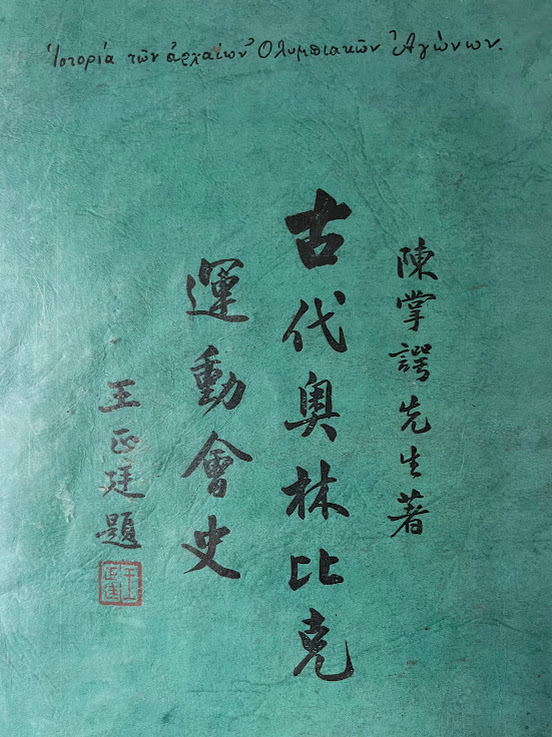 Ἱστορία τῶν ἀρχαίων Ὀλυμπιακῶν Ἀγώνων.
陳掌諤先生著
古代奧林比克
運動會史
王正廷題